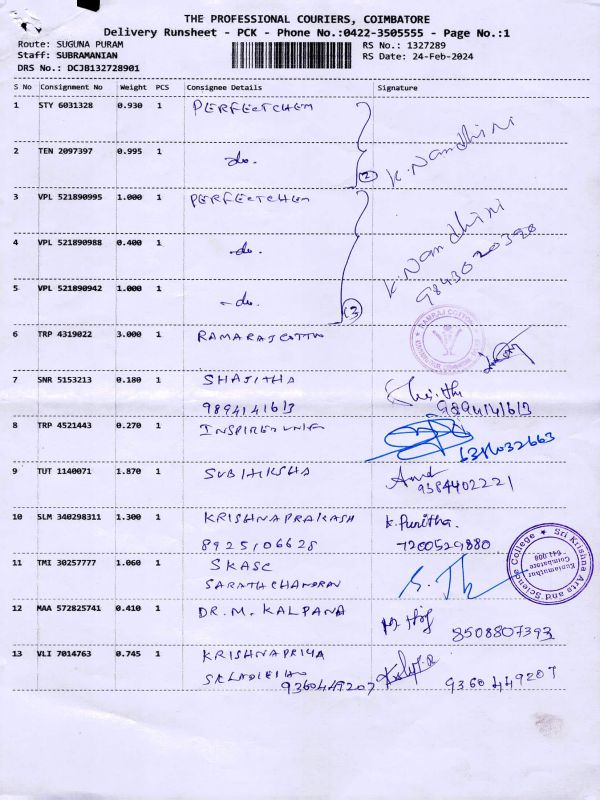 THE PROFESSIONAL COURIERS, COIMBATORE
Delivery Runsheet - PCK - Phone No.:0422-3505555 - Page No.:1
Route: SUGUNA PURAM RS No.: 1327289
Staff: SUBRAMANIAN RS Date: 24-Feb-2024
DRS No.: DCJB132728901
S No Consignment No Weight PCS Consignee Details Signature
1 STY 6031328 0.930 1 PERFECTCHEM
2 TEN 2097397 0.995 1 -do. (2) K. Nandhini
3 VPL 521890995 1.000 1 PERFECTCHEM
4 VPL 521890988 0.400 1 -do. K. Nandhini
9843020398
5 VPL 521890942 1.000 1 -do. (3)
6 TRP 4319022 3.000 1 RAMARAJ COTTON
RAMRAJ COTTON
7 SNR 5153213 0.180 1 SHAJITHA
9894141613 9894141613
8 TRP 4521443 0.270 1
9 TUT 1140071 1.870 1 SUBHIKSHA
9384402221
10 SLM 340298311 1.300 1 KRISHNAPRAKASH K. Punitha.
8925106628 7200529880
11 TMI 30257777 1.060 1 SKASC
SARATHCHANDRAN
Sri Krishna Arts and Science College
Kuniamuthur
Coimbatore
641 008
12 MAA 572825741 0.410 1 DR. M. KALPANA
8508807393
13 VLI 7014763 0.745 1 KRISHNAPRIYA
9360449207 9360449207